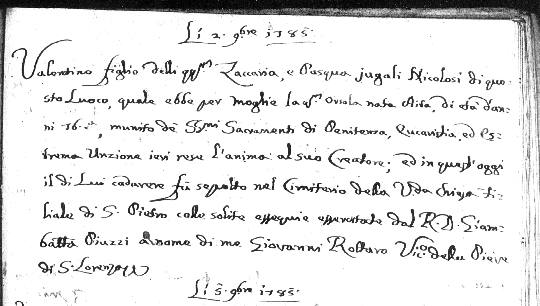 Li 2. 9bre 1785.
Valentino figlio delli qqm Zaccaria, e Pasqua jugali Nicolosi di que-
sto Luoco, quale ebbe per moglie la qm Orsola nata Aita, di età d'an-
ni 76 , munito de Ssmi Sacramenti di Penitenza, Eucaristia, ed Es-
trema Unzione ieri rese l'anima al suo Creatore; ed in quest'oggi
il di Lui cadavere fù sepolto nel Cimiterio della Vda Chiesa Fi-
liale di S. Pietro colle solite essequie essercitate dal R. D. Giam-
batta Piuzzi a nome di me Giovanni Rottaro Vico della Pieve
di S. Lorenzo
Li 5. 9bre 1785.